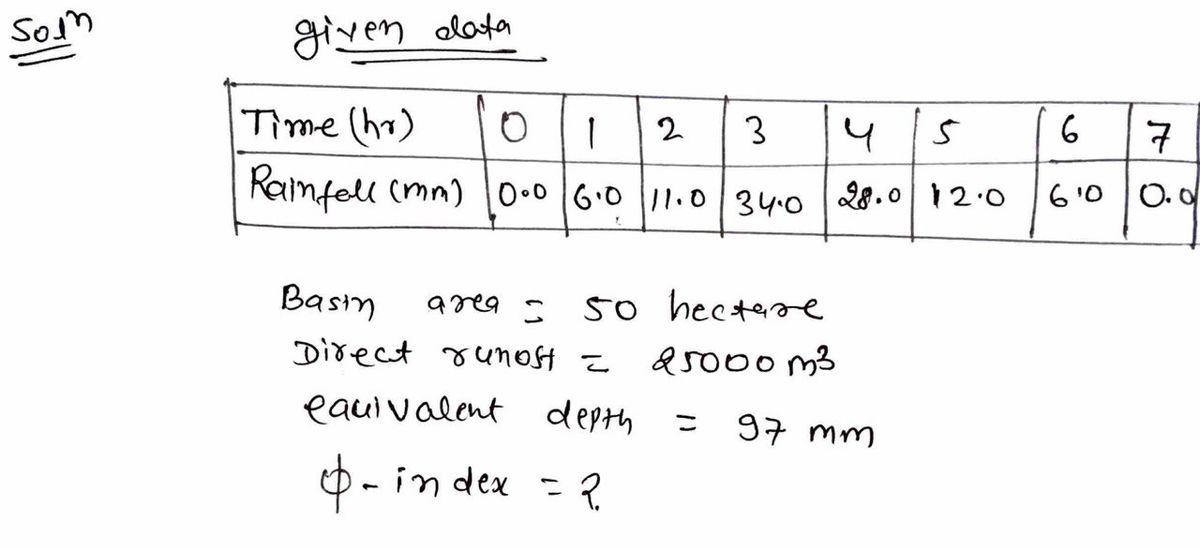 Soln given data
Time (hr) 0 1 2 3 4 5 6 7
Rainfall (mm) 0.0 6.0 11.0 34.0 28.0 12.0 6.0 0.0
Basin area = 50 hectare
Direct runoff = 25000 m3
equivalent depth = 97 mm
ϕ - index = ?